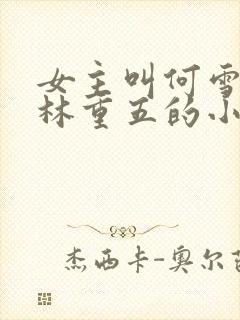 女主叫何雪
林重五的小
杰西卡-奥尔